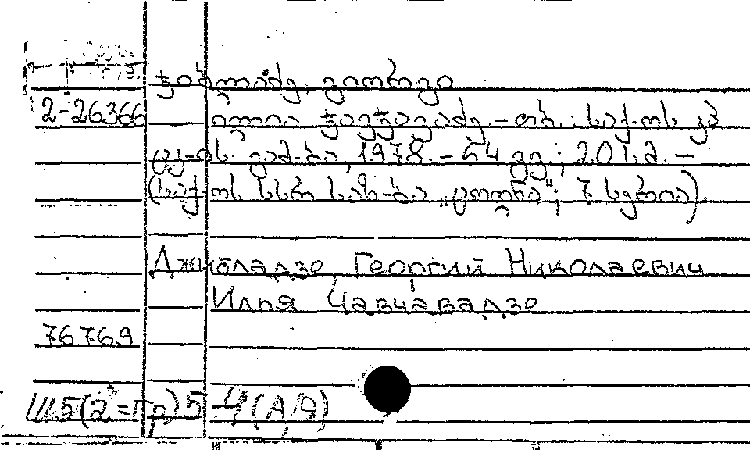 ჯიბლაძე, გიორგი
2-26366 ილია ჭავჭავაძე. – თბ.: საქ-ოს კპ
ცკ-ის გამ-ბა, 1978. – 64 გვ.; 20 სმ. –
(საქ-ოს სსრ საზ-ბა „ცოდნა“; 7 სერია)
Джибладзе, Георгий Николаевич
Илья Чавчавадзе
76769
Ш5(2=Гр)5-4(А/Я)